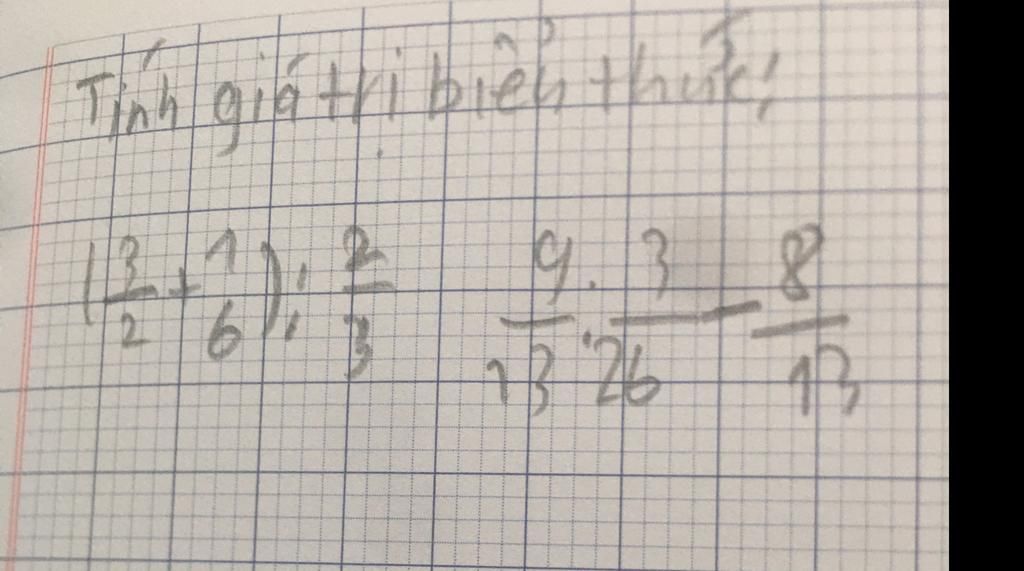 Tính giá trị biểu thức:
(3/2 + 1/6) : 2/3    9/13 : 3/26 - 8/13